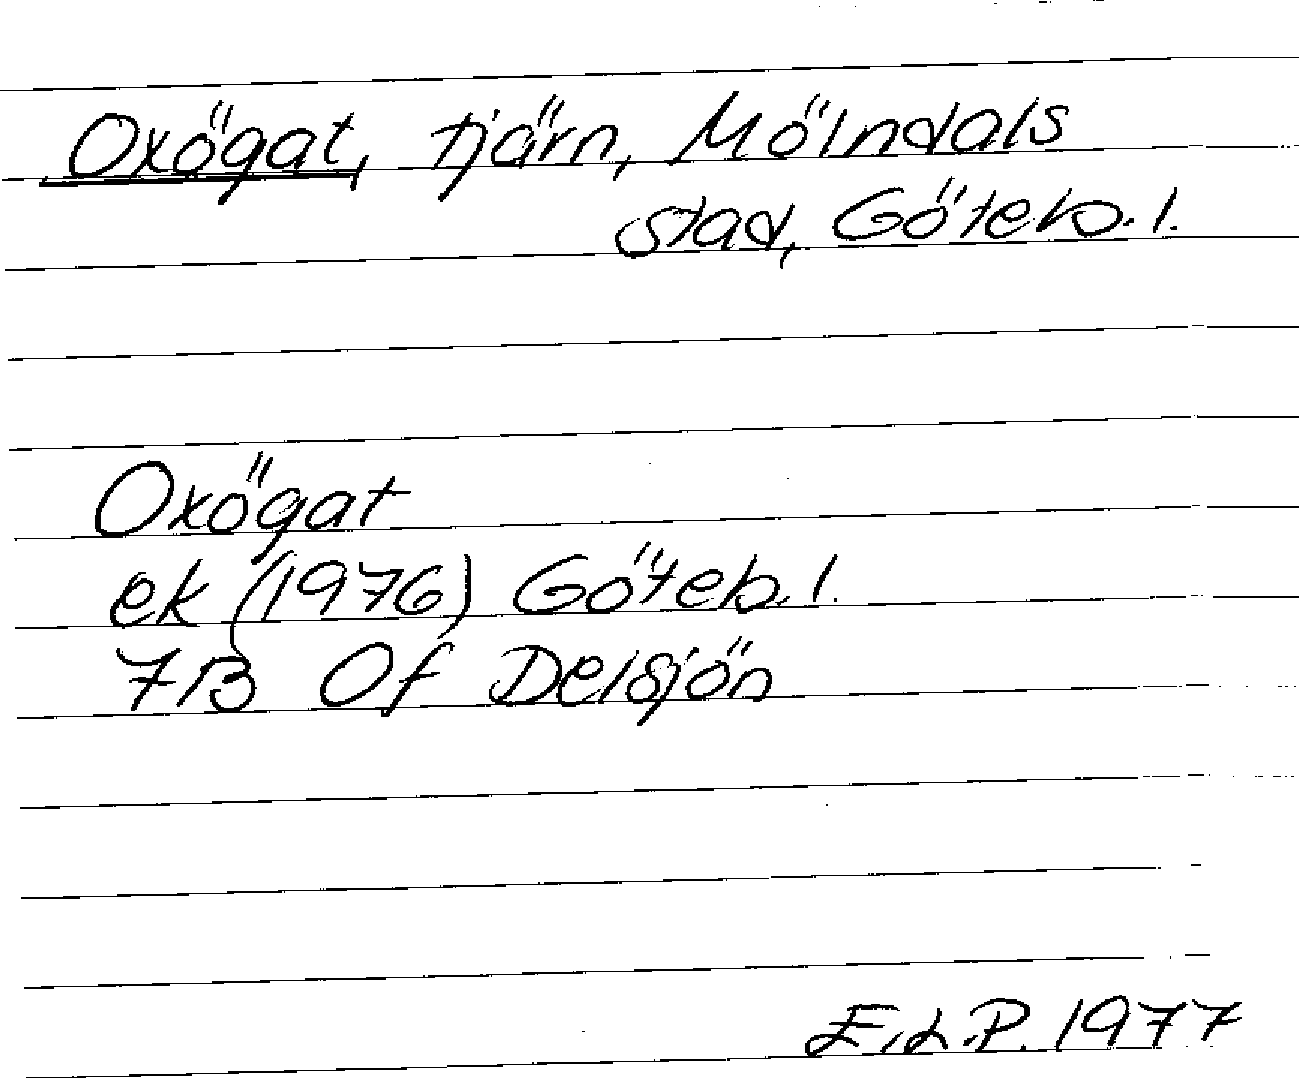 Oxögat, tjärn, Mölndals
stad, Göteb. l.
Oxögat
ek (1976) Göteb. l.
7B Of Delsjön
E.L.P. 1977